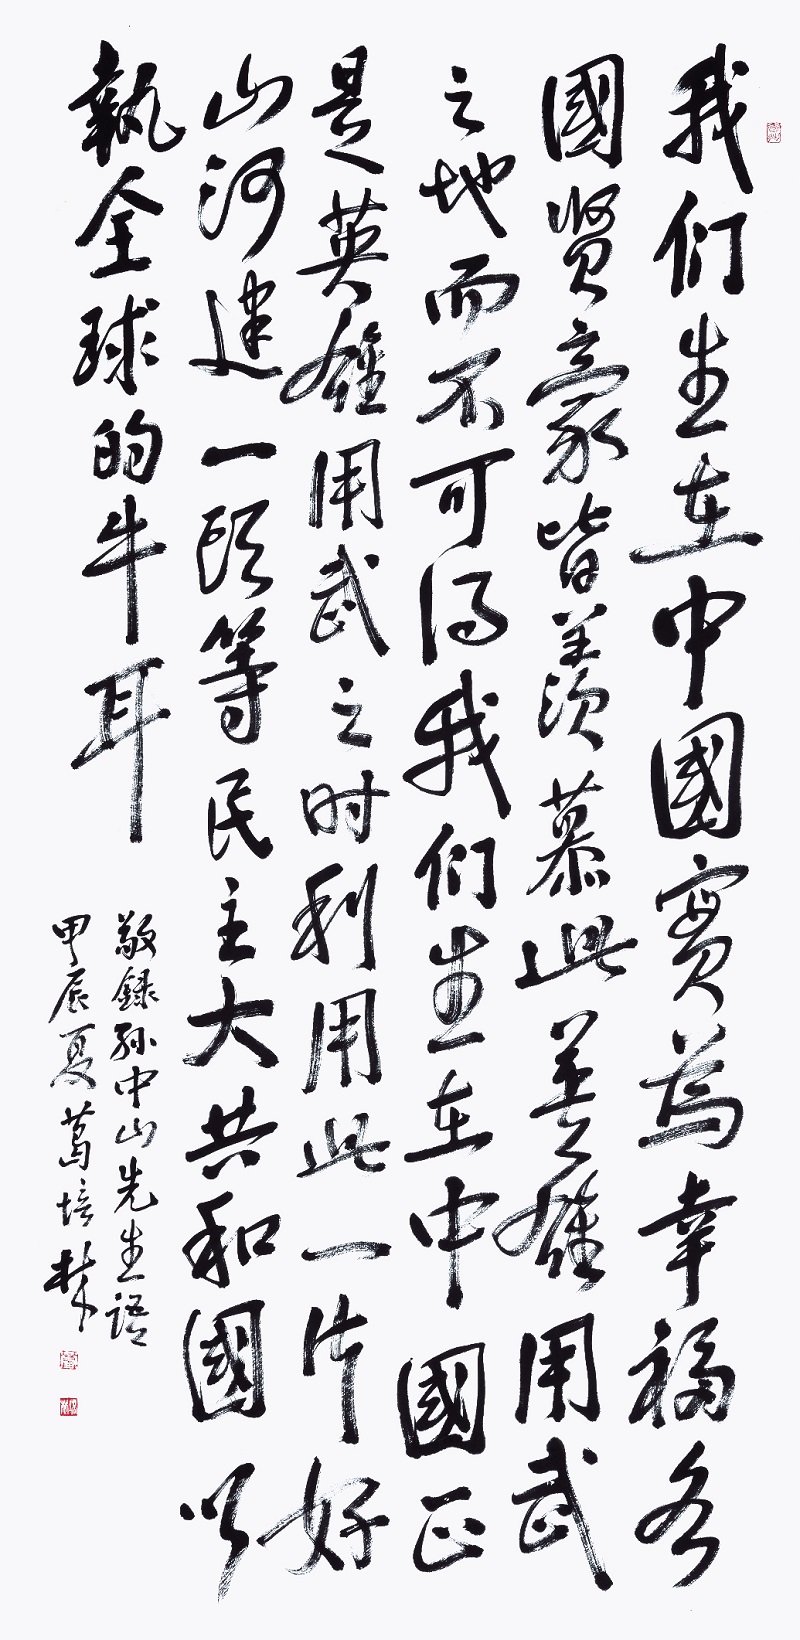 我们生在中國實為幸福各
國賢豪皆羡慕此英雄用武
之地而不可得我们生在中國正
是英雄用武之时利用此一片好
山河建一頭等民主大共和國以
執全球的牛耳
敬録孙中山先生語
甲辰夏葛培林